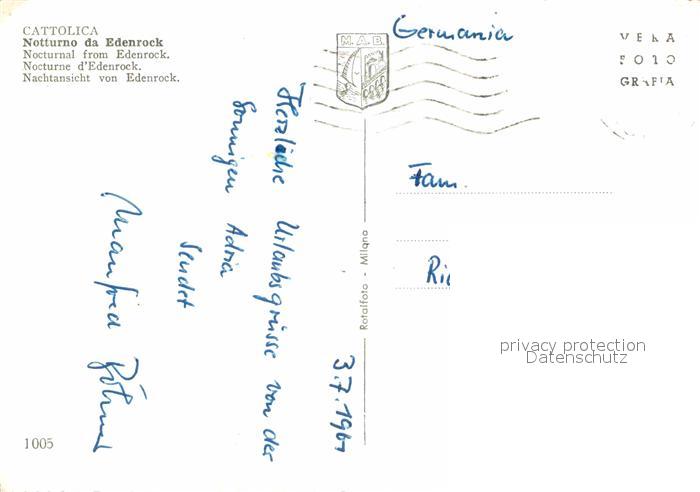 CATTOLICA
Notturno da Edenrock
Nocturnal from Edenrock.
Nocturne d'Edenrock.
Nachtansicht von Edenrock.
M.A.B.
Germania
VERA
FOTO
GRAFIA
Herzliche Urlaubsgrüsse von der
Sonnigen Adria
sendet
Manfred
3.7.1961
Rotalfoto - Milano
Fam.
privacy protection
Datenschutz
1005